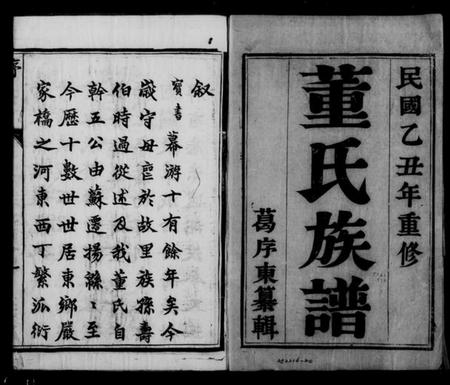 民國乙丑年重修
董氏族譜
葛序東纂輯
叙
寶書幕游十有餘年矣今
歲守毋䘮於故里族孫壽
伯時過從述及我董氏自
幹五公由蘇遷揚緜〻至
今歷十數世世居東鄉嚴
家橋之河東西丁繁派衍
序